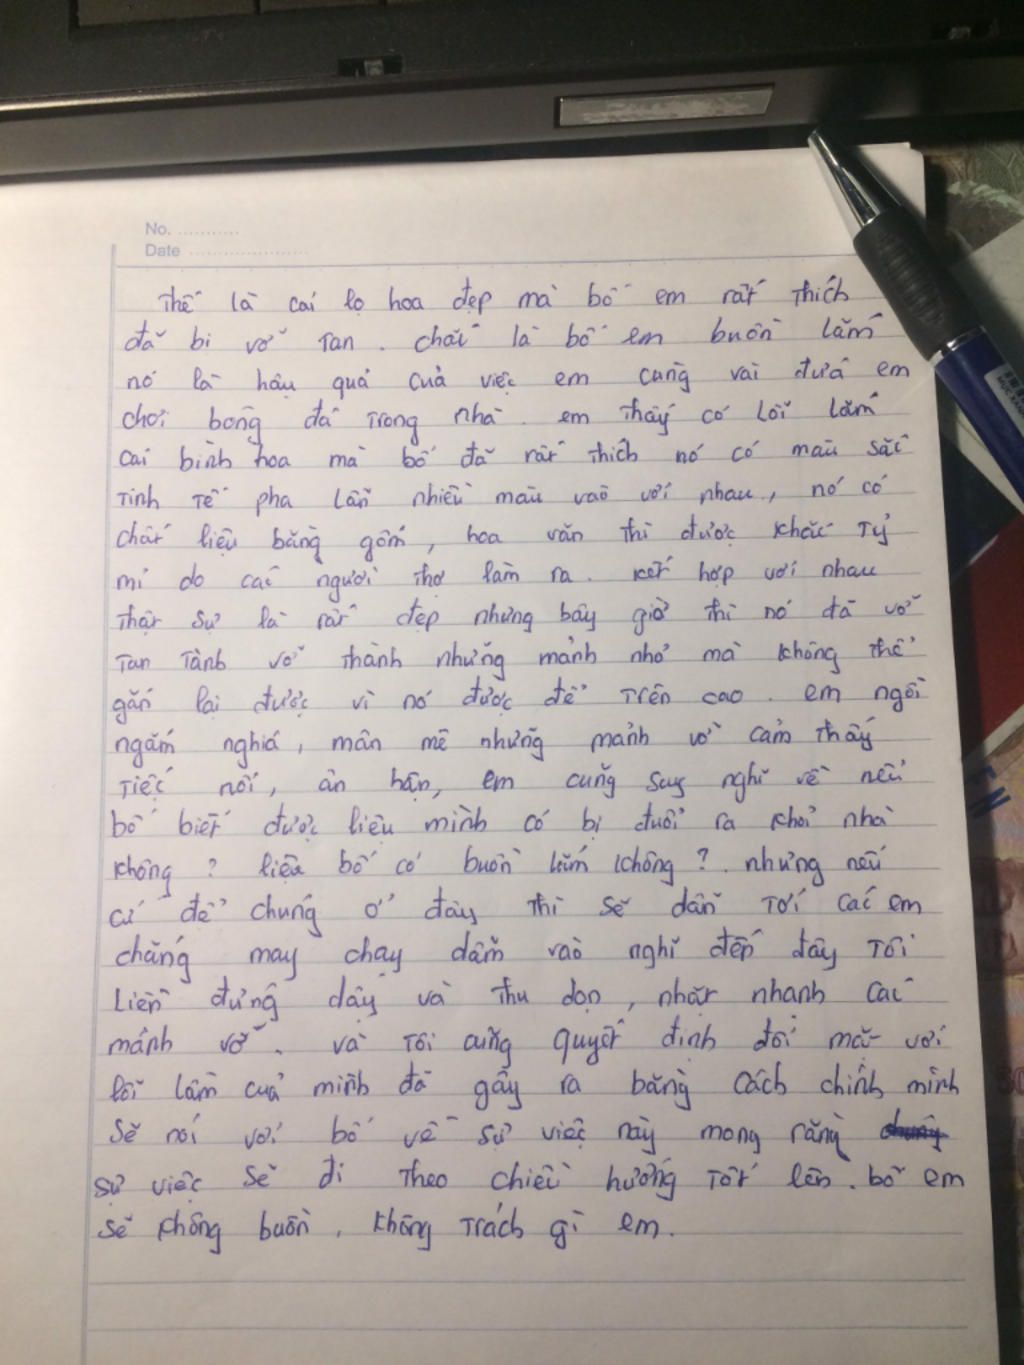 No. ............
Date ......................
Thế là cái lọ hoa đẹp mà bố em rất thích
đã bị vỡ tan. chắc là bố em buồn lắm
nó là hậu quả của việc em cùng vài đứa em
chơi bóng đá trong nhà. em thấy có lỗi lắm
cái bình hoa mà bố đã rất thích nó có màu sắc
tinh tế pha lẫn nhiều màu vào với nhau, nó có
chất liệu bằng gốm, hoa văn thì được khắc tỷ
mỉ do các người thợ làm ra. kết hợp với nhau
thật sự là rất đẹp nhưng bây giờ thì nó đã vỡ
tan tành vỡ thành những mảnh nhỏ mà không thể
gắn lại được vì nó được để trên cao. em ngồi
ngắm nghía, mân mê những mảnh vỡ cảm thấy
tiếc nối, ân hận, em cũng suy nghĩ về nếu
bố biết được liệu mình có bị đuổi ra khỏi nhà
không? liệu bố có buồn lắm không?. nhưng nếu
cứ để chúng ở đây thì sẽ dẫn tới các em
chẳng may chạy dẫm vào nghĩ đến đây tôi
liền đứng dậy và thu dọn, nhặt nhanh các
mảnh vỡ. và tôi cũng quyết định đối mặt với
lỗi lầm của mình đã gây ra bằng cách chính mình
sẽ nói với bố về sự việc này mong rằng
sự việc sẽ đi theo chiều hướng tốt lên. bố em
sẽ không buồn, không trách gì em.